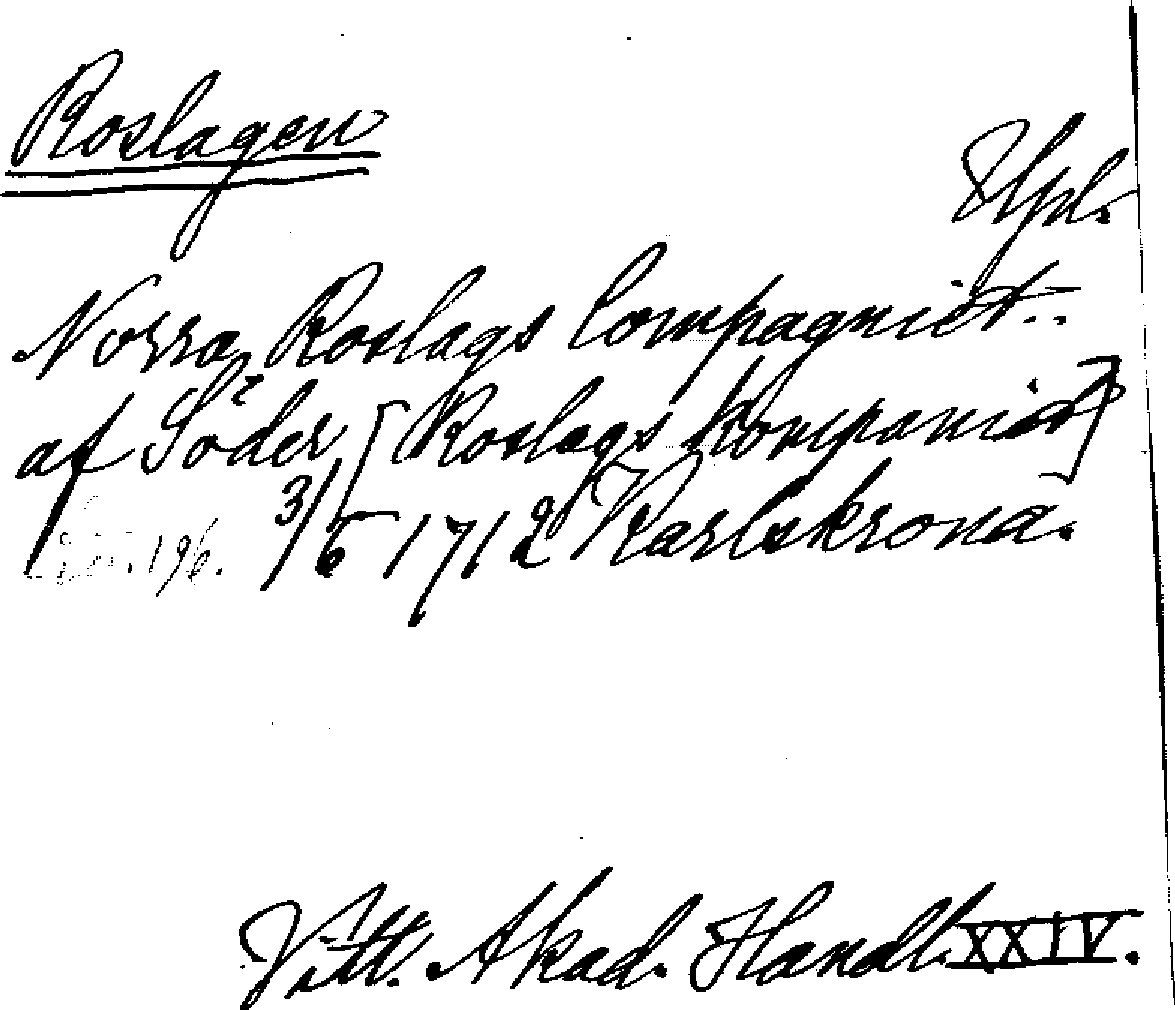 Roslagen
Upl.
Norra Roslags Compagniet..
af Söder [Roslags Kompaniet]
196. 3/6 1712 Karlskrona.
Vitt. Akad. Handl. XXIV.